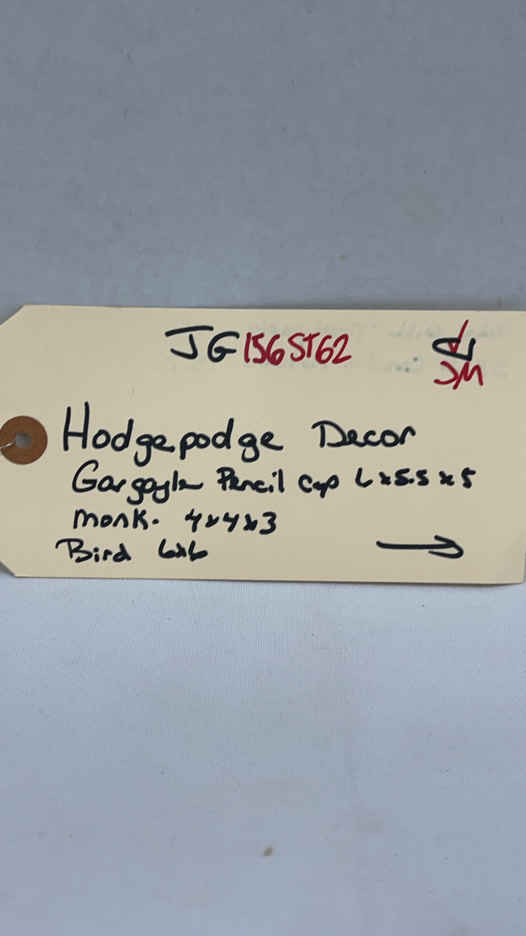 JG156ST62
JM
Hodgepodge Decor
Gargoyle Pencil Cup 6x5.5x5
Monk. 4x4x3
Bird 6x6